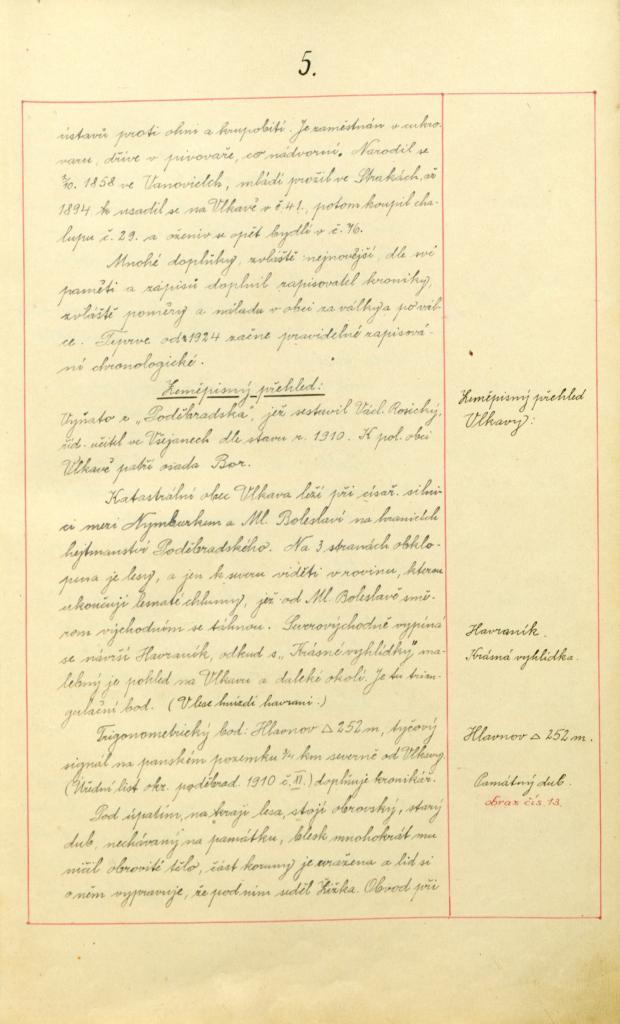 5.
ústavů proti ohni a krupobití. Je zaměstnán v cukro-
varu, dříve v pivovaře, co nádvorní. Narodil se
1858 ve Vanovicích, mládí prožil ve Strakách, až
1894 usadil se na Vlkavě v č. 41., potom koupil cha-
lupu č. 29. a oženiv se opět bydlí v č. 76.
Mnohé doplňky, zvláště nejnovější, dle své
paměti a zápisů doplnil zapisovatel kroniky,
zvláště poměry a náladu v obci za války a po vál-
ce. Teprve od r. 1924 začne pravidelné zapisová-
ní chronologické.
Zeměpisný přehled:
Zeměpisný přehled
Vlkavy:
Vyňato z „Poděbradska“, jež sestavil Václ. Rosický,
říd. učitel ve Všejanech dle stavu r. 1910. K pol. obci
Vlkavě patří osada Bor.
Katastrální obec Vlkava leží při císař. silni-
ci mezi Nymburkem a Ml. Boleslaví na hranicích
hejtmanství Poděbradského. Na 3 stranách obklo-
pena je lesy, a jen k severu viděti v rovinu, kterou
ukončují lesnaté chlumy, jež od Ml. Boleslavě smě-
rem východním se táhnou. Severovýchodně vypíná
se návrší Havraník, odkud s „Krásné vyhlídky“ ma-
lebný je pohled na Vlkavu a daleké okolí. Je tu trian-
gulační bod. (V lese hnízdí havrani.)
Havraník.
Krásná vyhlídka.
Trigonometrický bod: Hlavnov △ 252 m, tyčový
signál na panském pozemku 3/4 km severně od Vlkavy.
(Úřední list okr. poděbrad. 1910 č. XI.) doplňuje kronikář.
Hlavnov △ 252 m.
Pod úpatím, na kraji lesa, stojí obrovský, starý
dub, nechávaný na památku, blesk mnohokrát mu
ničil obrovité tělo, část koruny je uražena a lid si
o něm vypravuje, že pod ním seděl Žižka. Obvod při
Památný dub.
obraz čís. 13.